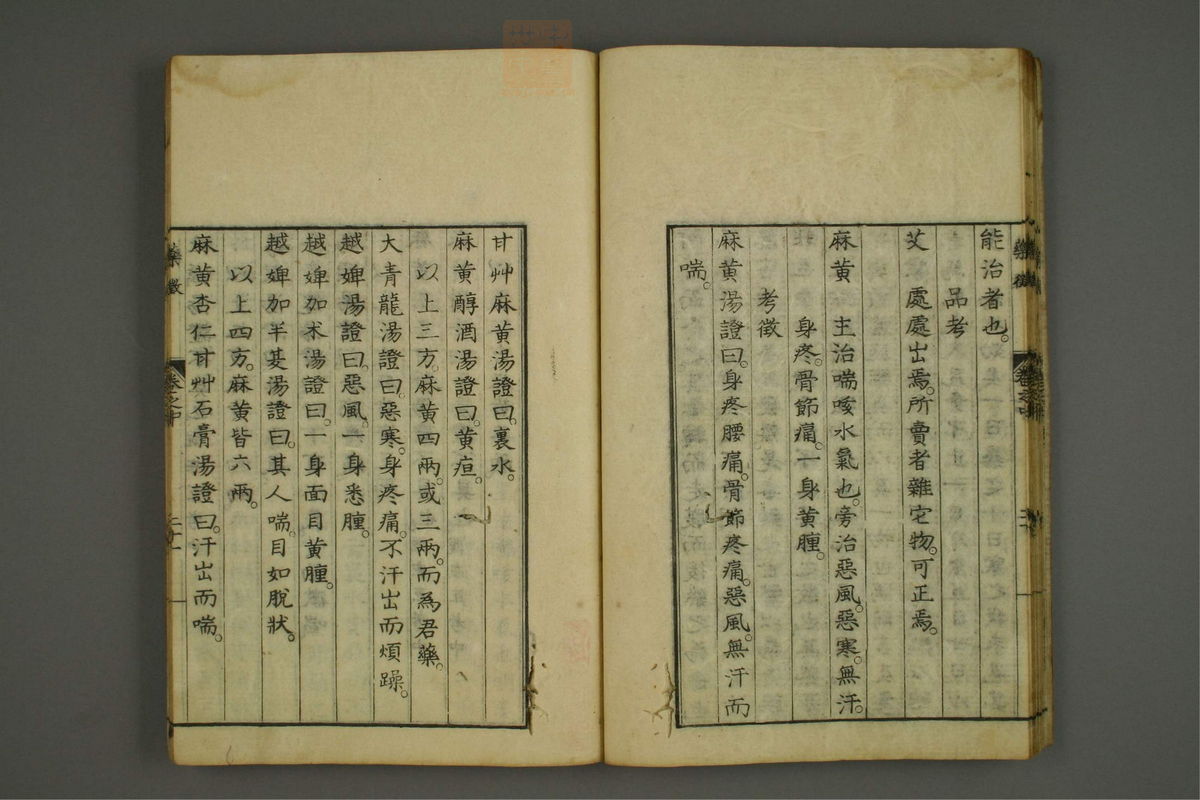 能治者也。
品考
艾 處處出焉。所賣者雜它物。可正焉。
麻黃 主治喘咳水氣也。旁治惡風。惡寒。無汗。
身疼。骨節痛。一身黃腫。
考徵
麻黃湯證曰。身疼腰痛。骨節疼痛。惡風。無汗而
喘。
甘艸麻黃湯證曰。裏水。
麻黃醇酒湯證曰。黃疸。
以上三方。麻黃四兩。或三兩。而為君藥。
大青龍湯證曰。惡寒。身疼痛。不汗出而煩躁。
越婢湯證曰。惡風。一身悉腫。
越婢加朮湯證曰。一身面目黃腫。
越婢加半夏湯證曰。其人喘。目如脫狀。
以上四方。麻黃皆六兩。
麻黃杏仁甘艸石膏湯證曰。汗出而喘。
藥徵
卷之中